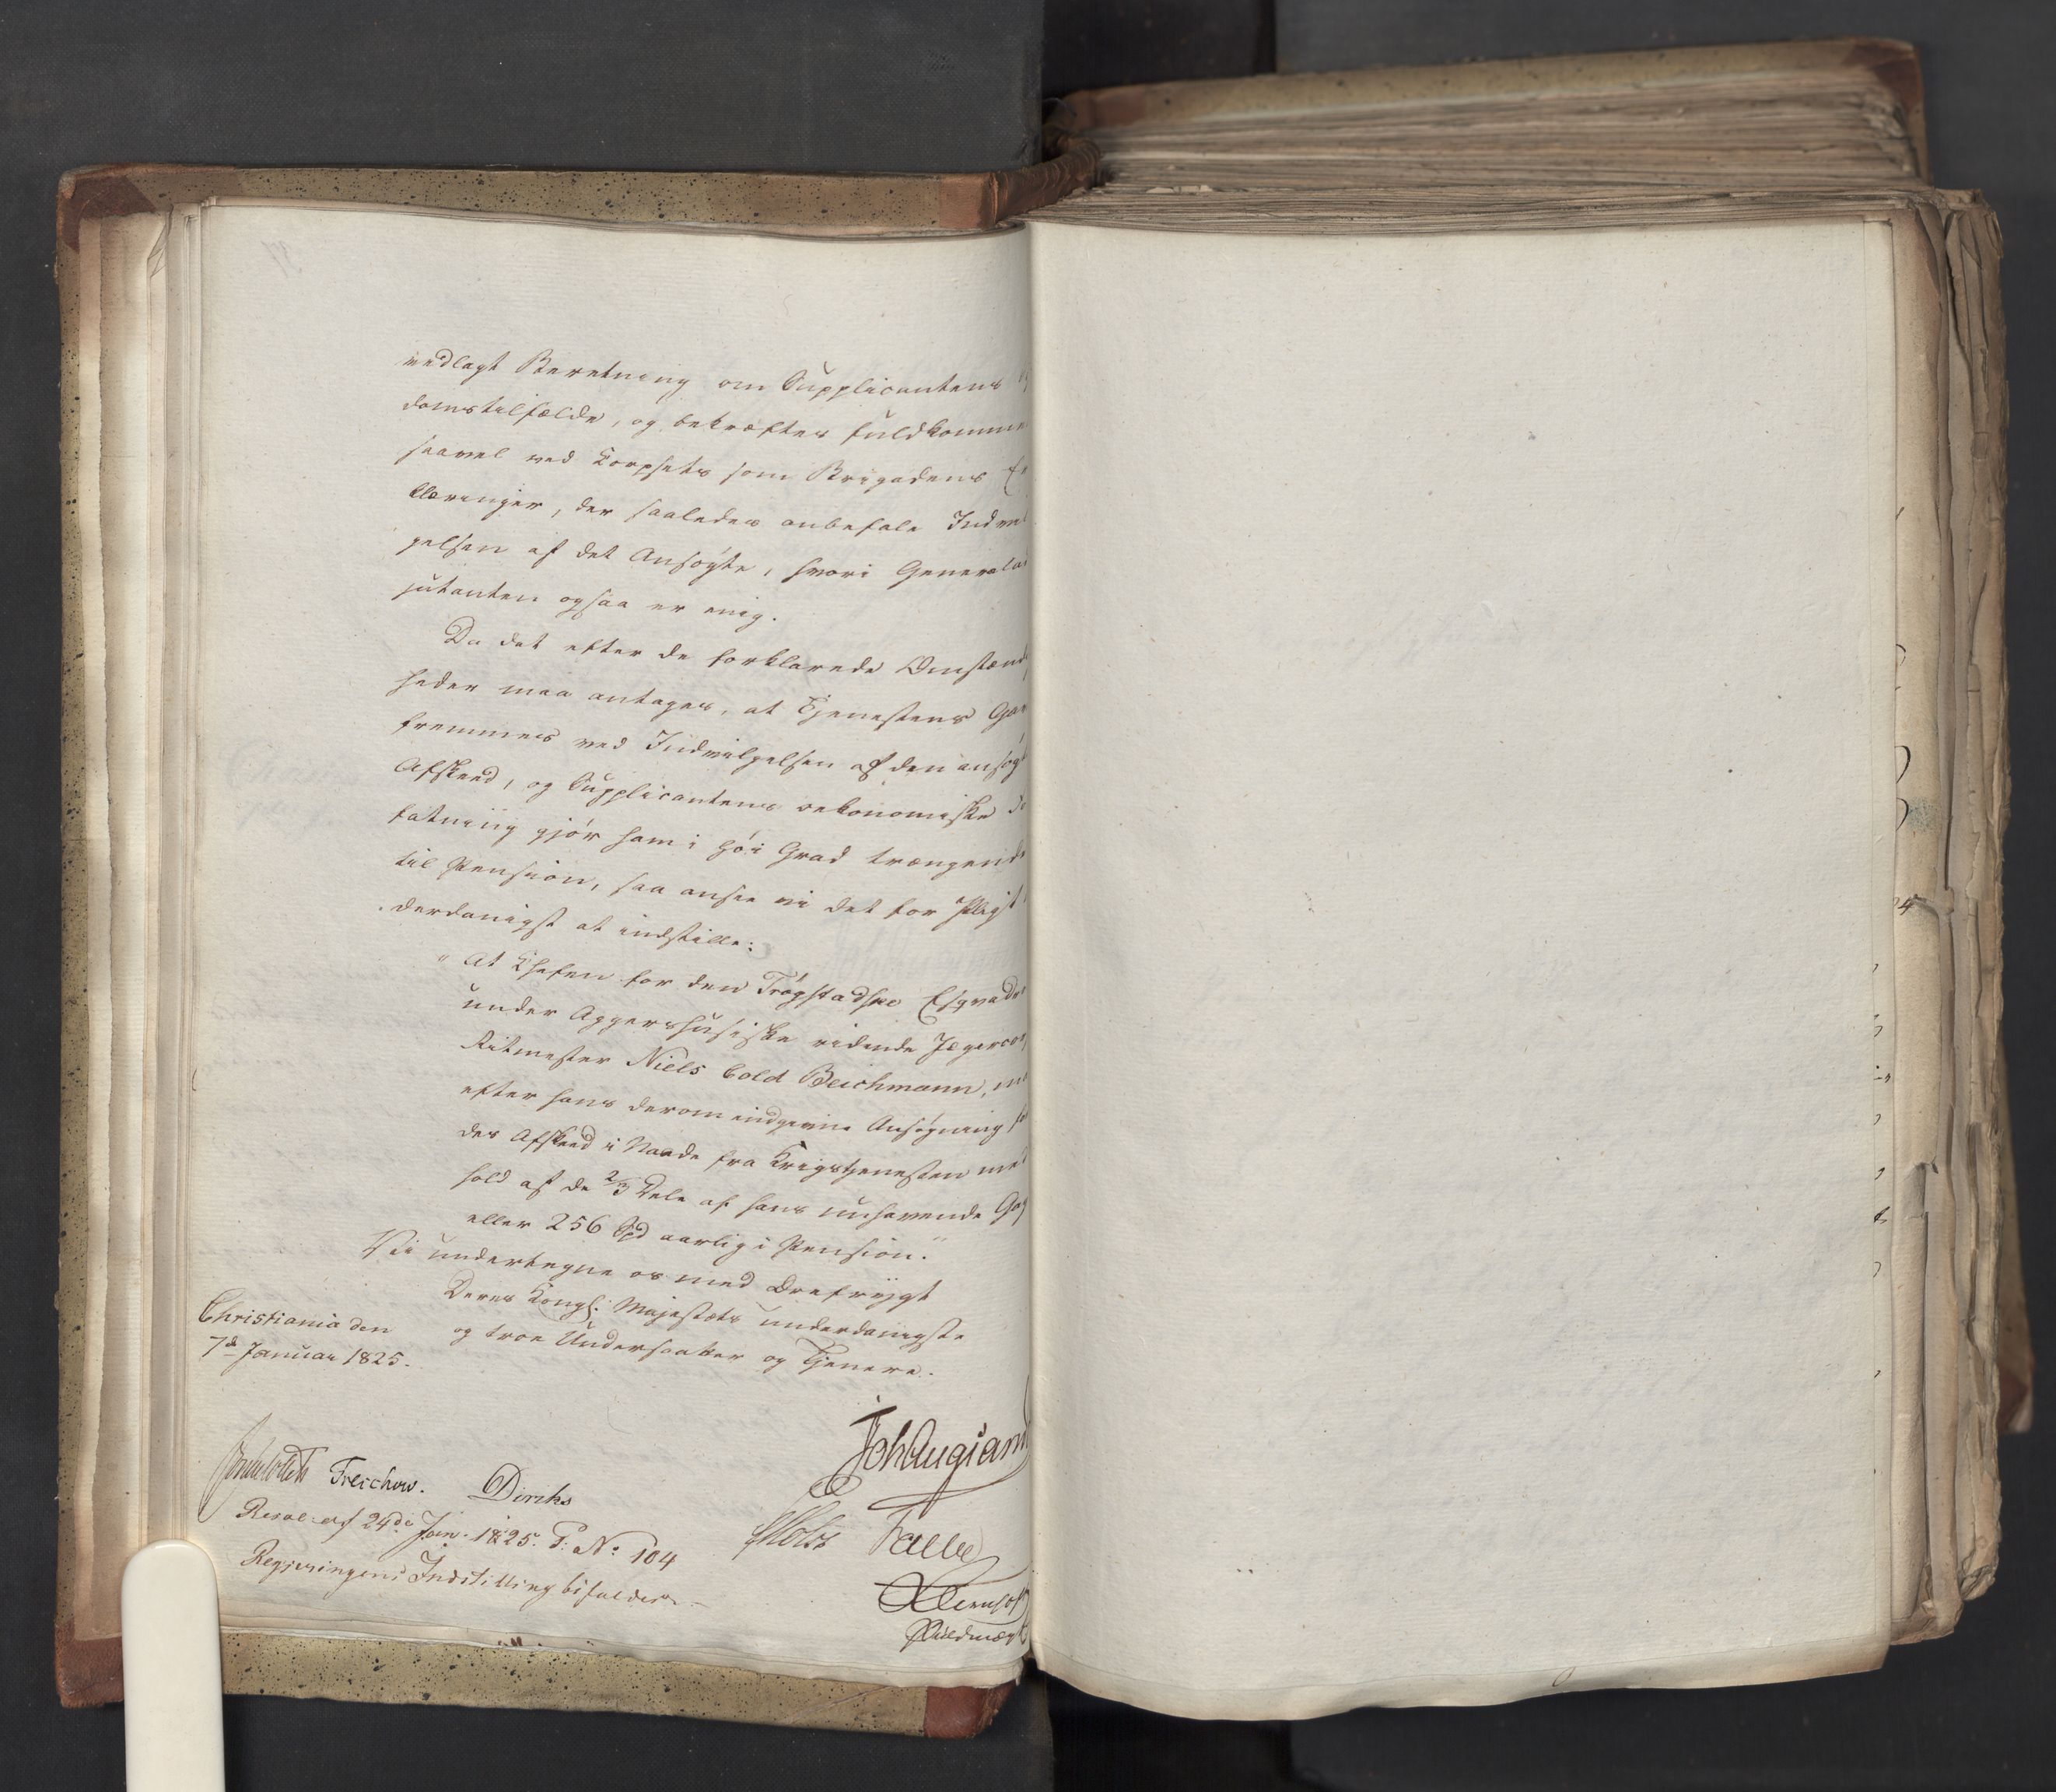 vedlagt Beretning om Supplicantens
domstilfælde, og bekræftes fuldkomme
saavel ved Korpsets som Brigadens Er
klæringer, der saaledes anbefale Indvil
gelsen af det Ansøgte, hvori Generalad
jutanten ogsaa er enig.
Da det efter de forklarede Omstænd
heder maa antages, at Tjenestens Gavn
fremmes ved Indvilgelsen af den ansøgt
Afskeed, og Supplicantens oekonomiske
fatning gjør ham i høi Grad trængende
til Pension, saa ansee vi det for Pligt
derdanigst at indstille:
"At Chefen for den Trøgstadske Esqvadr
under Aggershusiske ridende Jægercor
Ritmester Niels Cold Beichmann, m
efter hans derom indgivne Ansøgning
des Afskeed i Naade fra Krigstjenesten med
hold af de 2/3 Dele af hans innehavende Gag
eller 256 Spd aarlig i Pension."
Vi undertegne os med Ærefrygt
Deres Kongl: Majestæts underdanigste
og troe Undersaatter og Tjenere.
Christiania den
7de Januar 1825.
Treschow. Diriks
Motz
Resol: af 24de Jan. 1825. P: No 104
Regjeringens Indstilling bifaldes.